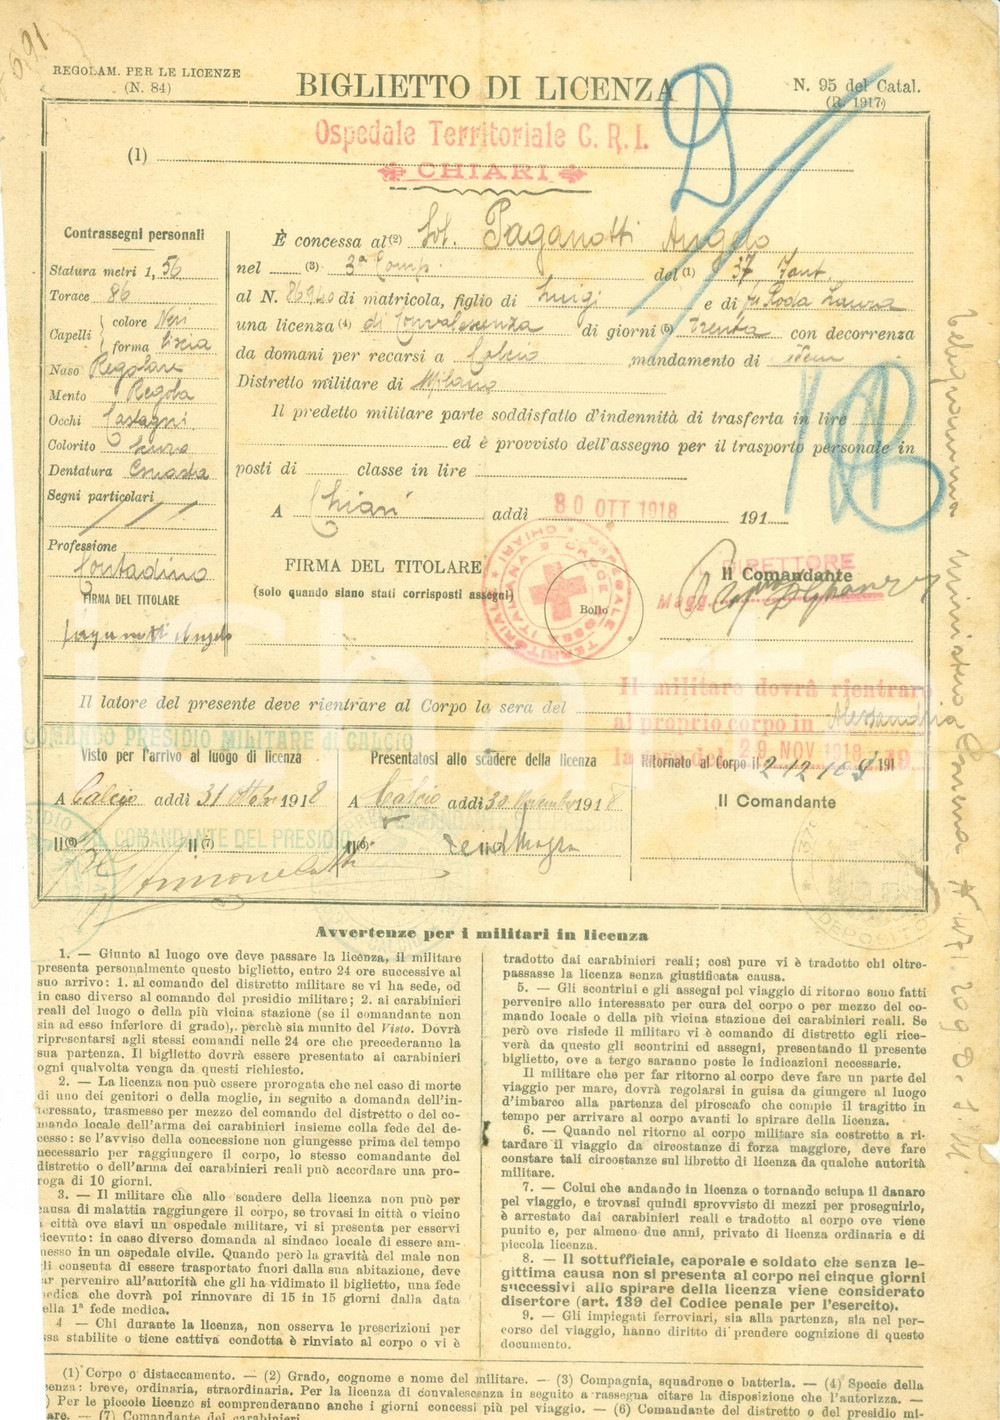 691
REGOLAM. PER LE LICENZE
(N. 84)
BIGLIETTO DI LICENZA
N. 95 del Catal.
(R. 1917)
Ospedale Territoriale C. R. I.
CHIARI
(1)
Contrassegni personali
Statura metri 1, 56
Torace 86
Capelli colore Neri
forma liscia
Naso Regolare
Mento Regola
Occhi Castagni
Colorito
Dentatura Guasta
Segni particolari
Professione
Contadino
FIRMA DEL TITOLARE
Paganotti Angelo
È concessa al (2) Sol. Paganotti Angelo
nel (3) 3ª Comp. del (1) 37 Fant.
al N. 86940 di matricola, figlio di Luigi e di fu Roda Laura
una licenza (4) di Convalescenza di giorni (5) trenta con decorrenza
da domani per recarsi a Calcio mandamento di idem
Distretto militare di Milano
Il predetto militare parte soddisfatto d'indennità di trasferta in lire
ed è provvisto dell'assegno per il trasporto personale in
posti di classe in lire
A Chiari addì 30 OTT 1918 191
FIRMA DEL TITOLARE
(solo quando siano stati corrisposti assegni)
Bollo
IL DIRETTORE
Il Comandante
Magg.
Il latore del presente deve rientrare al Corpo la sera del
Il militare dovrà rientrare
al proprio corpo in Alessandria
la sera del 29 NOV 1918 19
COMANDO PRESIDIO MILITARE di CALCIO
Visto per l'arrivo al luogo di licenza
A Calcio addì 31 Ottobre 1918
Il (6) Il (7)
IL COMANDANTE DEL PRESIDIO
Presentatosi allo scadere della licenza
A Calcio addì 30 Novembre 1918
Il (6)
Ritornato al Corpo il 2 12 191
Il Comandante
Avvertenze per i militari in licenza
1. — Giunto al luogo ove deve passare la licenza, il militare
presenta personalmente questo biglietto, entro 24 ore successive al
suo arrivo: 1. al comando del distretto militare se vi ha sede, od
in caso diverso al comando del presidio militare; 2. ai carabinieri
reali del luogo o della più vicina stazione (se il comandante non
sia ad esso inferiore di grado), perchè sia munito del Visto. Dovrà
ripresentarsi agli stessi comandi nelle 24 ore che precederanno la
sua partenza. Il biglietto dovrà essere presentato ai carabinieri
ogni qualvolta venga da questi richiesto.
2. — La licenza non può essere prorogata che nel caso di morte
di uno dei genitori o della moglie, in seguito a domanda dell'in-
teressato, trasmesso per mezzo del comando del distretto o del co-
mando locale dell'arma dei carabinieri insieme colla fede del de-
cesso: se l'avviso della concessione non giungesse prima del tempo
necessario per raggiungere il corpo, lo stesso comandante del
distretto o dell'arma dei carabinieri reali può accordare una pro-
roga di 10 giorni.
3. — Il militare che allo scadere della licenza non può per
causa di malattia raggiungere il corpo, se trovasi in città o vicino
a città ove siavi un ospedale militare, vi si presenta per esservi
ricevuto: in caso diverso domanda al sindaco locale di essere am-
messo in un ospedale civile. Quando però la gravità del male non
gli consenta di essere trasportato fuori dalla sua abitazione, deve
far pervenire all'autorità che gli ha vidimato il biglietto, una fede
medica che dovrà poi rinnovare di 15 in 15 giorni dalla data
della 1ª fede medica.
4 — Chi durante la licenza, non osserva le prescrizioni per
essa stabilite o tiene cattiva condotta è rinviato al corpo o vi è
tradotto dai carabinieri reali; così pure vi è tradotto chi oltre-
passasse la licenza senza giustificata causa.
5. — Gli scontrini e gli assegni pel viaggio di ritorno sono fatti
pervenire allo interessato per cura del corpo o per mezzo del co-
mando locale o della più vicina stazione dei carabinieri reali. Se
però ove risiede il militare vi è comando di distretto egli rice-
verà da questo gli scontrini ed assegni, presentando il presente
biglietto, ove a tergo saranno poste le indicazioni necessarie.
Il militare che per far ritorno al corpo deve fare un parte del
viaggio per mare, dovrà regolarsi in guisa da giungere al luogo
d'imbarco alla partenza del piroscafo che compie il tragitto in
tempo per arrivare al corpo avanti lo spirare della licenza.
6. — Quando nel ritorno al corpo militare sia costretto a ri-
tardare il viaggio da circostanze di forza maggiore, deve fare
constare tali circostanze sul libretto di licenza da qualche autorità
militare.
7. — Colui che andando in licenza o tornando sciupa il danaro
pel viaggio, e trovasi quindi sprovvisto di mezzi per proseguirlo,
è arrestato dai carabinieri reali e tradotto al corpo ove viene
punito e, per almeno due anni, privato di licenza ordinaria e di
piccola licenza.
8. — Il sottufficiale, caporale e soldato che senza le-
gittima causa non si presenta al corpo nei cinque giorni
successivi allo spirare della licenza viene considerato
disertore (art. 139 del Codice penale per l'esercito).
9. — Gli impiegati ferroviari, sia alla partenza, sia nel per-
corso del viaggio, hanno diritto di prendere cognizione di questo
documento.
(1) Corpo o distaccamento. — (2) Grado, cognome e nome del militare. — (3) Compagnia, squadrone o batteria. — (4) Specie della
cenza: breve, ordinaria, straordinaria. Per la licenza di convalescenza in seguito a rassegna citare la disposizione che l'autorizza. —
) Per le piccole licenze si comprenderanno anche i giorni concessi più pel viaggio. — (6) Comandante del distretto o del presidio mi-
are. — (7) Comandante dei carabinieri.